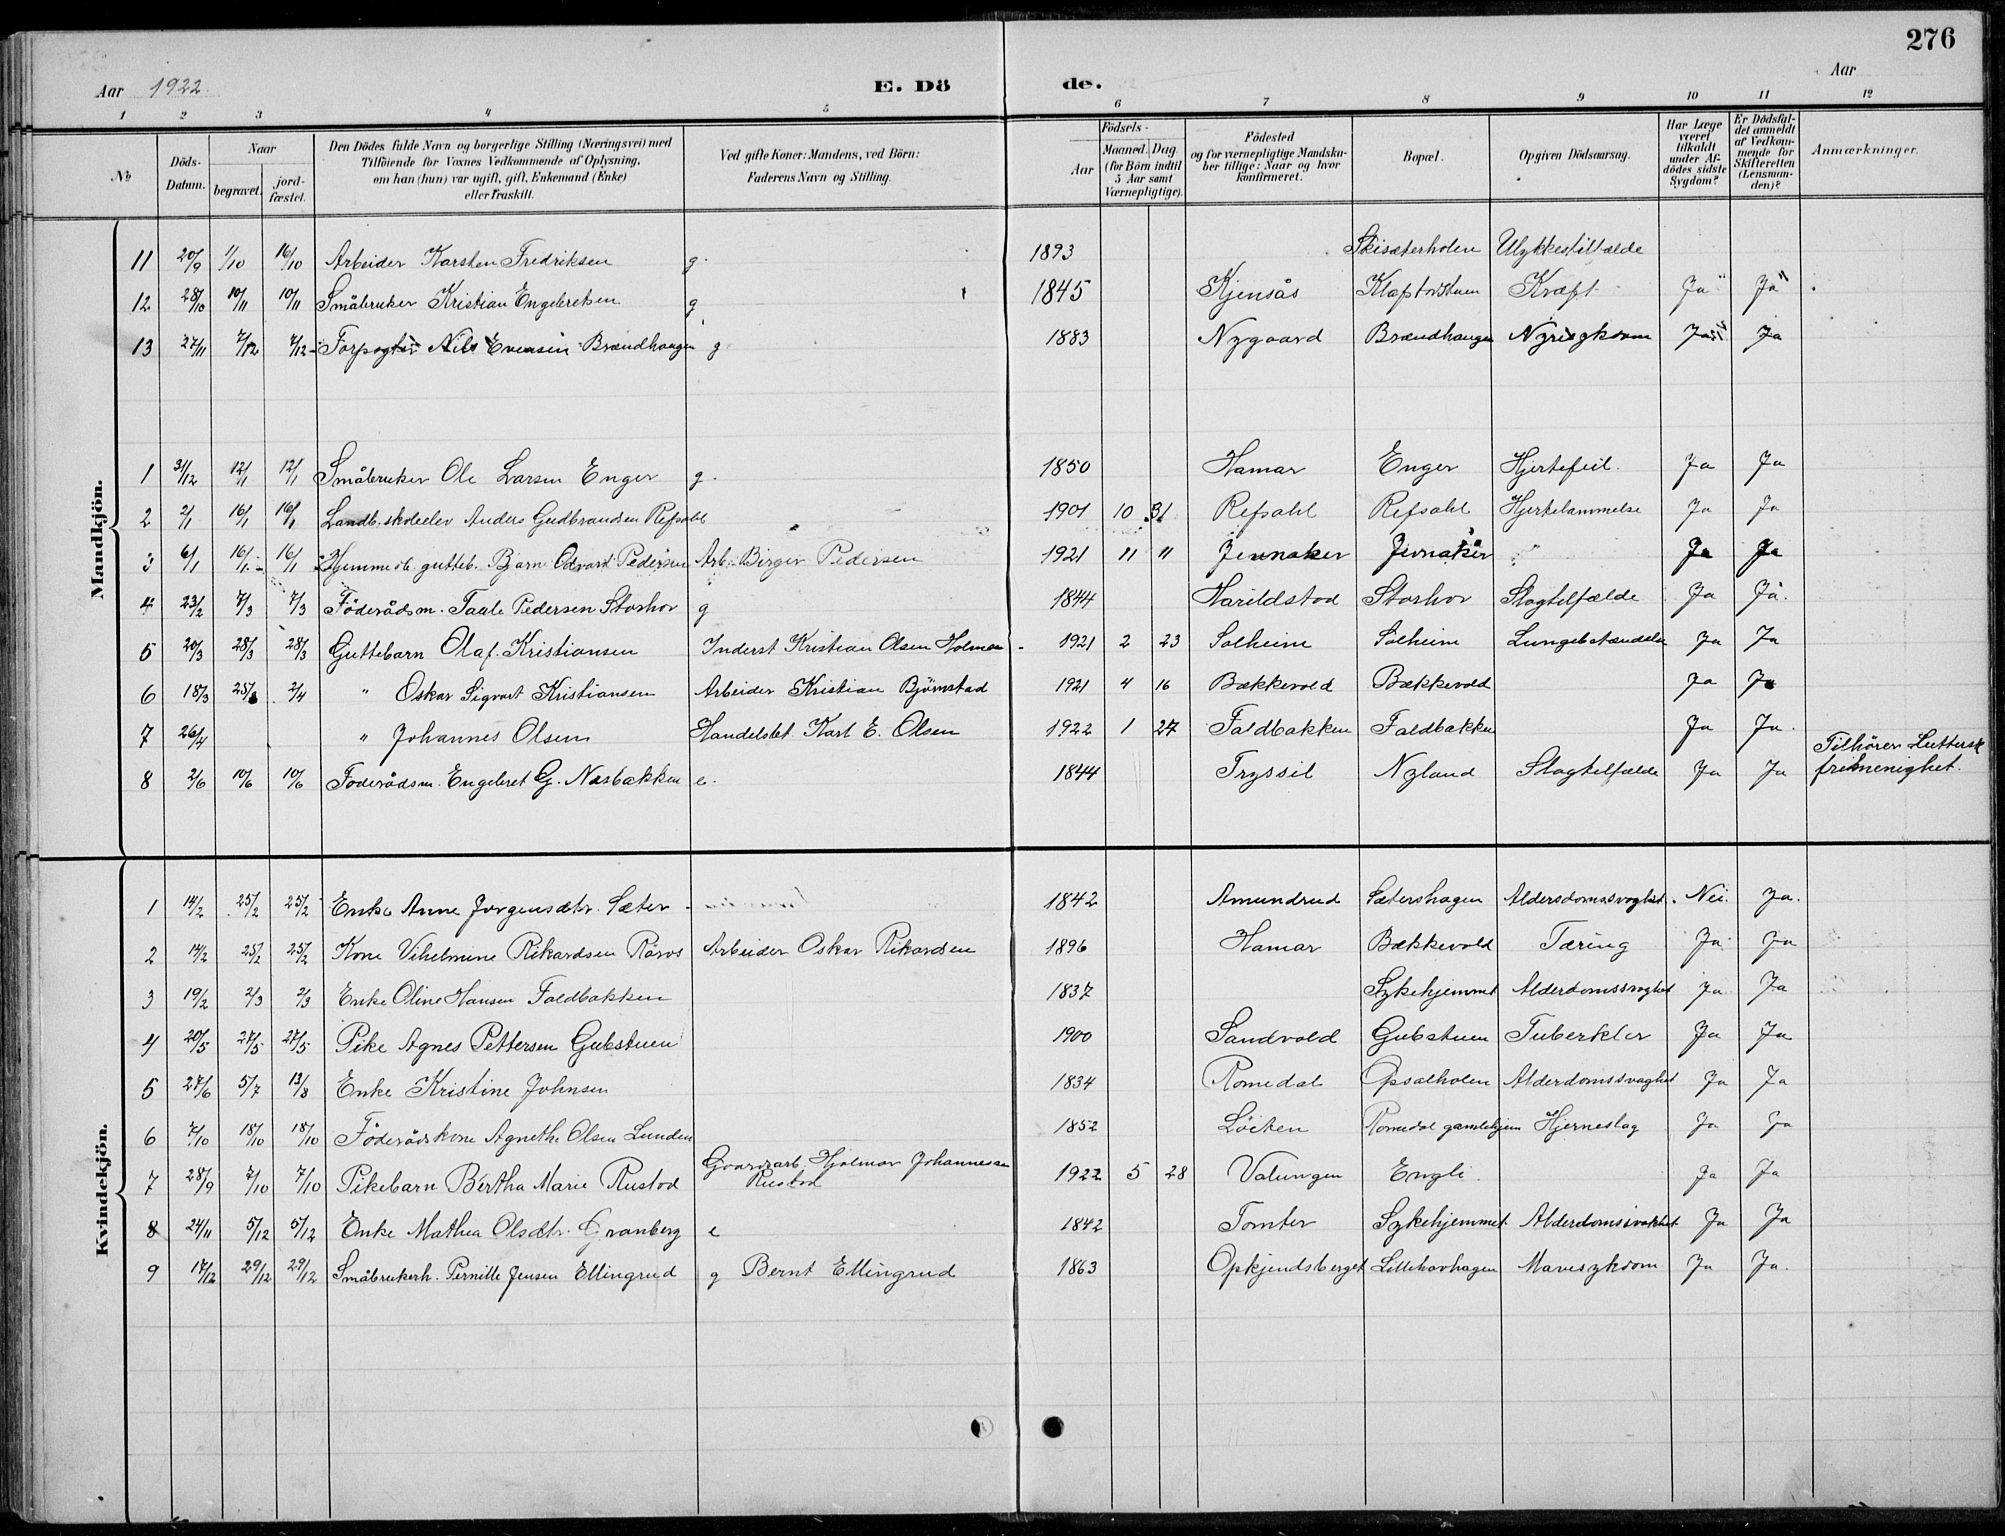 276
Aar 1922. E. Dö de. Aar
1 2 3 4 5 6 7 8 9 10 11 12
No
Döds-Datum.
Naar
begravet.
jord-fæstet.
Den Dödes fulde Navn og borgerlige Stilling (Næringsvei) med
Tilföiende for Voxnes Vedkommende af Oplysning,
om han (hun) var ugift, gift, Enkemand (Enke)
eller fraskilt.
Ved gifte Koner: Mandens, ved Börn:
Faderens Navn og Stilling.
Födsels-
Aar
Maaned. Dag
(for Börn indtil
5 Aar samt
Værnepligtige).
Födested
og for værnepligtige Mandska-
ber tillige: Naar og hvor
konfirmeret.
Bopæl.
Opgiven Dödsaarsag.
Har Læge
været
tilkaldt
under Af-
dödes sidste
Sygdom?
Er Dödsfal-
det anmeldt
af Vedkom-
mende for
Skifteretten
(Lensman-
den)?
Anmærkninger.
Mandkjön.
11 20/9 1/10 16/10 Arbeider Karsten Fredriksen g. 1893 Skisæterholen Ulykkestilfælde
12 28/10 10/11 10/11 Småbruker Kristian Engebretsen g 1845 Kjensås Kræft Ja Ja
13 27/11 7/12 7/12 Forpagter Nils Evensen Brændhaugen g 1883 Nygaard Brændhaugen Nyresykdom Ja Ja
1 31/12 12/1 12/1 Småbruker Ole Larsen Enger g. 1850 Hamar Enger Hjertefeil. Ja Ja
2 2/1 16/1 16/1 Landb. skoleelev Anders Gudbrandsen Refsahl 1901 10 31 Refsahl Refsahl Hjertelammelse Ja Ja
3 6/1 16/1 16/1 Hjemmedb. gutteb. Bjarne Edvard Pedersen Arb. Birger Pedersen 1921 11 11 Jevnaker Jevnaker " Ja Ja
4 23/2 7/3 7/3 Föderådsm. Taale Pedersen Storhov g 1844 Harildstad Storhov Slagtilfælde Ja Ja.
5 20/3 28/3 28/3 Guttebarn Olaf Kristiansen Inderst Kristian Olsen Holmen 1921 2 23 Solheim Solheim Lungebetændelse Ja Ja
6 18/3 25/3 2/4 " Oskar Sigvart Kristiansen Arbeider Kristian Björnstad 1921 4 16 Bækkevold Bækkevold Ja Ja
7 26/4 " Johannes Olsen Handelsbet. Karl E. Olsen 1922 1 27 Faldbakken Faldbakken Ja Ja.
8 2/6 10/6 10/6 Foderådsm. Engebret G. Næsbakken e. 1844 Tryssil Nyland Slagtilfælde Ja Ja Tilhörer Luttersk
frimenighet.
Kvindekjön.
1 14/2 25/2 25/2 Enke Anne Jorgensdtr. Sæter 1842 Amundrud Sætershagen Aldersdomssvaghet. Nei. Ja.
2 14/2 25/2 25/2 Kone Vilhelmine Rikardsen Röros Arbeider Oskar Rikardsen 1896 Hamar Bækkevold Tæring Ja Ja
3 19/2 2/3 2/3 Enke Oline Hansen Faldbakken 1837 Sykehjemmet Alderdomssvaghet Ja Ja
4 20/5 27/5 27/5 Pike Agnes Pettersen Gubstuen 1900 Sandvold Gubstuen Tuberkler Ja Ja
5 27/6 5/7 13/8 Enke Kristine Johnsen 1834 Romedal Opsalholen Alderdomssvaghet Ja Ja
6 7/10 18/10 18/10 Föderådskone Agnethe Olsen Lunden 1852 Löiten Romedal gamlehjem Hjerneslag Ja Ja
7 28/9 7/10 7/10 Pikebarn Bertha Marie Rustad Gaardsarb. Hjalmar Johannessen
Rustad 1922 5 28 Valungen Engli. Ja Ja
8 24/11 5/12 5/12 Enke Mathea Olsdtr. Granberg e 1842 Tomter Sykehjemmet Alderdomssvakhet Ja Ja
9 17/12 29/12 29/12 Småbrukerh. Pernille Jensen Ellingrud g Bernt Ellingrud 1863 Opkjendsberget Lillehavhagen Mavesykdom Ja Ja.